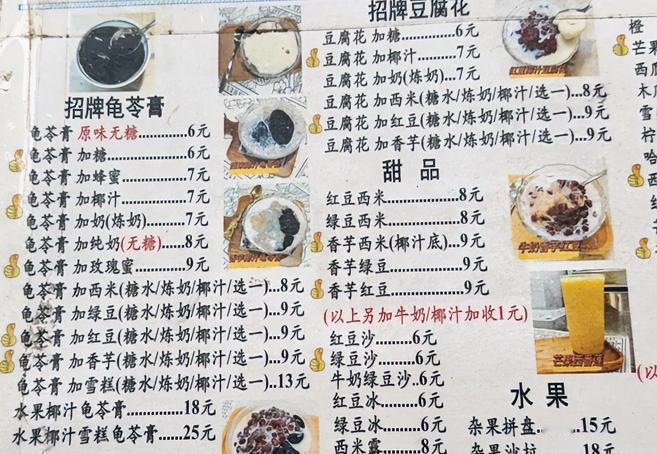 招牌龟苓膏
龟苓膏 原味无糖............6元
龟苓膏 加糖...................6元
龟苓膏 加蜂蜜...............7元
龟苓膏 加椰汁...............7元
龟苓膏 加奶(炼奶).........7元
龟苓膏 加纯奶(无糖)......8元
龟苓膏 加玫瑰蜜............9元
龟苓膏 加西米(糖水/炼奶/椰汁/选一)...8元
龟苓膏 加绿豆(糖水/炼奶/椰汁/选一)...9元
龟苓膏 加红豆(糖水/炼奶/椰汁/选一)...9元
龟苓膏 加香芋(糖水/炼奶/椰汁/选一)...9元
龟苓膏 加雪糕(糖水/炼奶/椰汁/选一)..13元
水果椰汁龟苓膏............18元
水果椰汁雪糕龟苓膏......25元
招牌豆腐花
豆腐花 加糖...............6元
豆腐花 加椰汁............7元
豆腐花 加奶(炼奶)......7元
豆腐花 加西米(糖水/炼奶/椰汁/选一)...8元
豆腐花 加红豆(糖水/炼奶/椰汁/选一)...9元
豆腐花 加香芋(糖水/炼奶/椰汁/选一)...9元
甜 品
红豆西米...............8元
绿豆西米...............8元
香芋西米(椰汁底)...9元
香芋绿豆...............9元
香芋红豆...............9元
(以上另加牛奶/椰汁加收1元)
红豆沙.........6元
绿豆沙.........6元
牛奶绿豆沙..6元
红豆冰.........6元
绿豆冰.........6元
西米露.........8元
牛奶香芋红豆
水 果
杂果拼盘.........15元
杂果沙拉.........18元
橙
芒果
西瓜